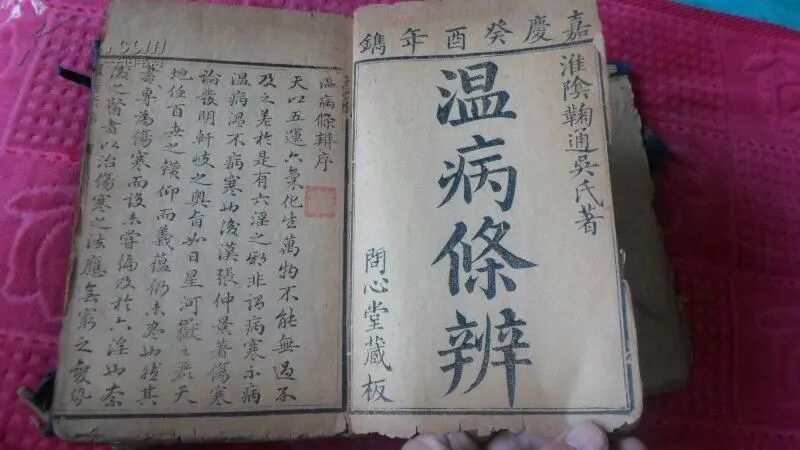 嘉慶癸酉年鐫
淮陰鞠通吳氏著
温病條辨
問心堂藏板
温病條辨序
天以五運六氣化生萬物不能無過不
及之差於是有六淫之邪非謂病寒不病
温病温不病寒也後漢張仲景著傷寒
論發明軒岐之奧旨如日星河嶽之麗天
地任百世之鑽仰而義蘊仍未盡也然其
書專為傷寒而設未嘗徧及於六淫也奈
後之醫者以治傷寒之法應無窮之變勢